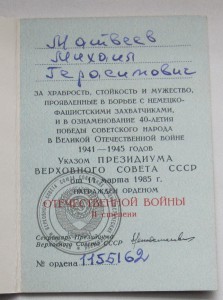 Матвеев
Михаил
Герасимович
ЗА ХРАБРОСТЬ, СТОЙКОСТЬ И МУЖЕСТВО,
ПРОЯВЛЕННЫЕ В БОРЬБЕ С НЕМЕЦКО-
ФАШИСТСКИМИ ЗАХВАТЧИКАМИ,
И В ОЗНАМЕНОВАНИЕ 40-ЛЕТИЯ
ПОБЕДЫ СОВЕТСКОГО НАРОДА
В ВЕЛИКОЙ ОТЕЧЕСТВЕННОЙ ВОЙНЕ
1941—1945 ГОДОВ
Указом ПРЕЗИДИУМА
ВЕРХОВНОГО СОВЕТА СССР
от 11 марта 1985 г.
НАГРАЖДЕН ОРДЕНОМ
ОТЕЧЕСТВЕННОЙ ВОЙНЫ
II степени
Секретарь Президиума
Верховного Совета СССР
№ ордена 1155162